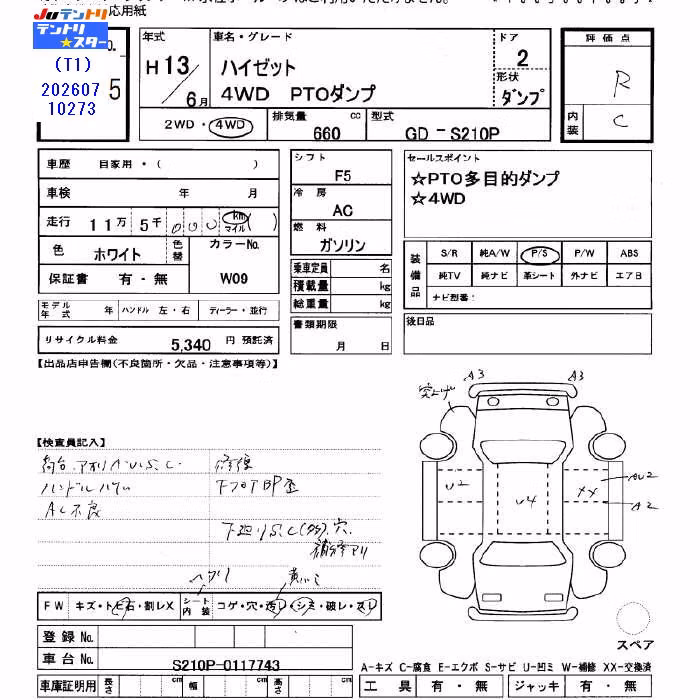 応用紙
JUテントリ
テントリ★スター
(T1)
202607
10273
No.
5
年式
H 13 / 6月
車名・グレード
ハイゼット
4WD PTOダンプ
ドア
2
形状
ダンプ
評価点
R
内装
C
2WD・4WD
排気量
660 cc
型式
GD - S210P
車歴 自家用・( )
車検 年 月
走行 11万 5千 000 km マイル ( )
色 ホワイト 色替 カラーNo.
W09
保証書 有・無
モデル年式 年 ハンドル 左・右 ディーラー・並行
リサイクル料金 5,340 円 預託済
シフト
F5
冷房
AC
燃料
ガソリン
乗車定員 名
積載量 kg
総重量 kg
書類期限
月 日
セールスポイント
☆PTO多目的ダンプ
☆4WD
装備品
S/R 純A/W P/S P/W ABS
純TV 純ナビ 革シート 外ナビ エアB
ナビ型番: ( )
後日品
【出品店申告欄(不良箇所・欠品・注意事項等)】
【検査員記入】
荷台.アオリA.U.S.C.
AC不良
下廻りS.C(多).穴.
補修アリ
突上げ
A3
A3
U2
U4
XX
AU2
A2
FW キズ・トビ石・割レX
シート内装 コゲ・穴・汚レ・シミ・破レ・スレ
登録No.
車台No. S210P-0117743
車庫証明用 長さ cm 幅 cm 高さ cm
スペア
A-キズ C-腐食 E-エクボ S-サビ U-凹ミ W-補修 XX-交換済
工具 有・無 ジャッキ 有・無